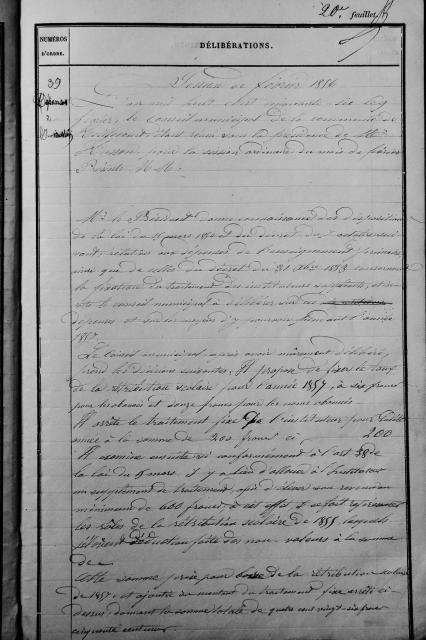 20e feuillet
NUMÉROS D'ORDRE.
DÉLIBÉRATIONS.
39
Session de février 1856
L'an mil huit cent cinquante six le
février, le Conseil municipal de la commune de
étant réuni sous la présidence de Mr
pour la session ordinaire du mois de février
Présents M.M.
Mr le Président donne connaissance des dispositions
de la loi du 15 mars 1850 et du décret du 7 octobre sui
vant, relatives aux dépenses de l'enseignement primaire
ainsi que de celles du décret du 31 Xbre 1853 concernant
la fixation du traitement des instituteurs et in
vite le conseil municipal à délibérer sur les
dépenses et sur les moyens d'y pourvoir pendant l'année
1857.
Le Conseil municipal, après avoir mûrement délibéré,
prend les décisions suivantes. Il propose de fixer le taux
de la rétribution scolaire pour l'année 1857, à six francs
pour les abonnés et douze francs pour les non abonnés.
Il arrête le traitement fixe de l'instituteur pour ladite
année à la somme de 200 francs ci, 200
Il examine ensuite si conformément à l'art 38 de
la loi du 15 mars il y a lieu d'allouer à l'instituteur
un supplément de traitement, afin d'élever son revenu au
minimum de 600 francs, à cet effet il se fait représenter
les rôles de la rétribution scolaire de 1855, lesquels
s'élèvent déduction faite des non-valeurs à la somme
de
Cette somme prise pour base de la rétribution scolaire
de 1857 et ajoutée au montant du traitement fixe arrêté ci-
dessus donnant la somme totale de quatre cent vingt-six francs
cinquante centimes